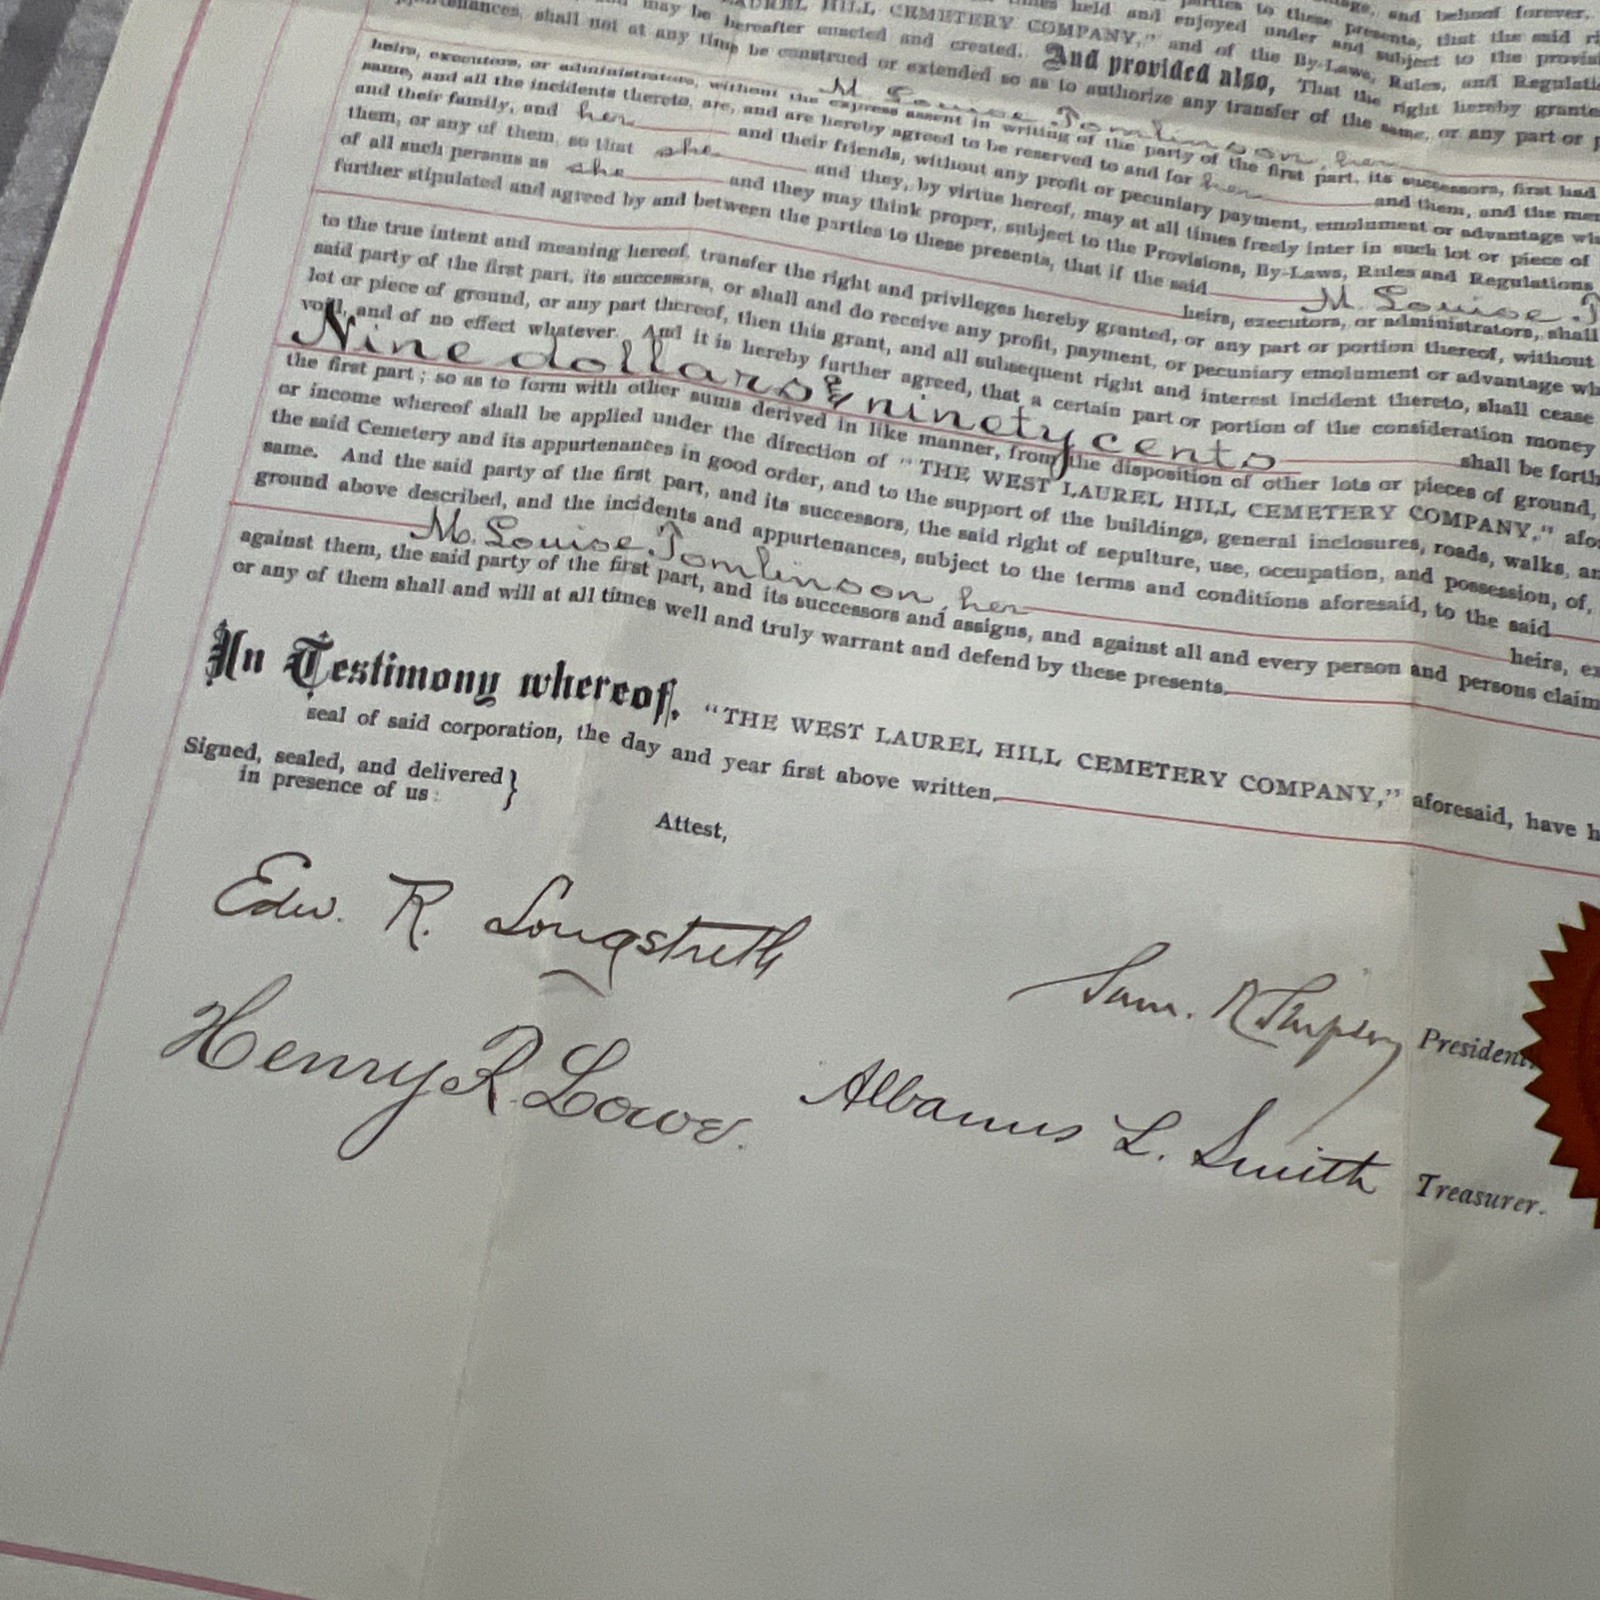 parties to these presents, that the said
and behoof forever.
times held and enjoyed under and subject to the
may be hereafter enacted and created. And provided also, That the right hereby
LAUREL HILL CEMETERY COMPANY," and of the By-Laws, Rules, and
shall not at any time be construed or extended so as to authorize any transfer of the same, or any part or
M. Louise Tomlinson, her
heirs, executors, or administrators, without the express assent in writing of the party of the first part, its successors, first had
same, and all the incidents thereto, are, and are hereby agreed to be reserved to and for her and them, and the
and their family, and her and their friends, without any profit or pecuniary payment, emolument or advantage
them, or any of them, so that she and they, by virtue hereof, may at all times freely inter in such lot or piece of
of all such persons as she and they may think proper, subject to the Provisions, By-Laws, Rules and Regulations
further stipulated and agreed by and between the parties to these presents, that if the said M. Louise
heirs, executors, or administrators, shall
to the true intent and meaning hereof, transfer the right and privileges hereby granted, or any part or portion thereof, without
said party of the first part, its successors, or shall and do receive any profit, payment, or pecuniary emolument or advantage
lot or piece of ground, or any part thereof, then this grant, and all subsequent right and interest incident thereto, shall cease
void, and of no effect whatever. And it is hereby further agreed, that a certain part or portion of the consideration money
Nine dollars & ninety cents shall be
the first part; so as to form with other sums derived in like manner, from the disposition of other lots or pieces of ground,
or income whereof shall be applied under the direction of "THE WEST LAUREL HILL CEMETERY COMPANY,"
the said Cemetery and its appurtenances in good order, and to the support of the buildings, general inclosures, roads, walks,
same. And the said party of the first part, and its successors, the said right of sepulture, use, occupation, and possession, of,
ground above described, and the incidents and appurtenances, subject to the terms and conditions aforesaid, to the said
M. Louise Tomlinson, her heirs,
against them, the said party of the first part, and its successors and assigns, and against all and every person and persons
or any of them shall and will at all times well and truly warrant and defend by these presents.
In Testimony whereof, "THE WEST LAUREL HILL CEMETERY COMPANY," aforesaid, have
seal of said corporation, the day and year first above written.
Signed, sealed, and delivered }
in presence of us:
Attest,
Edw. R. Longstreth
Sam. President.
Henry R. Lowe.
Albanus L. Smith Treasurer.